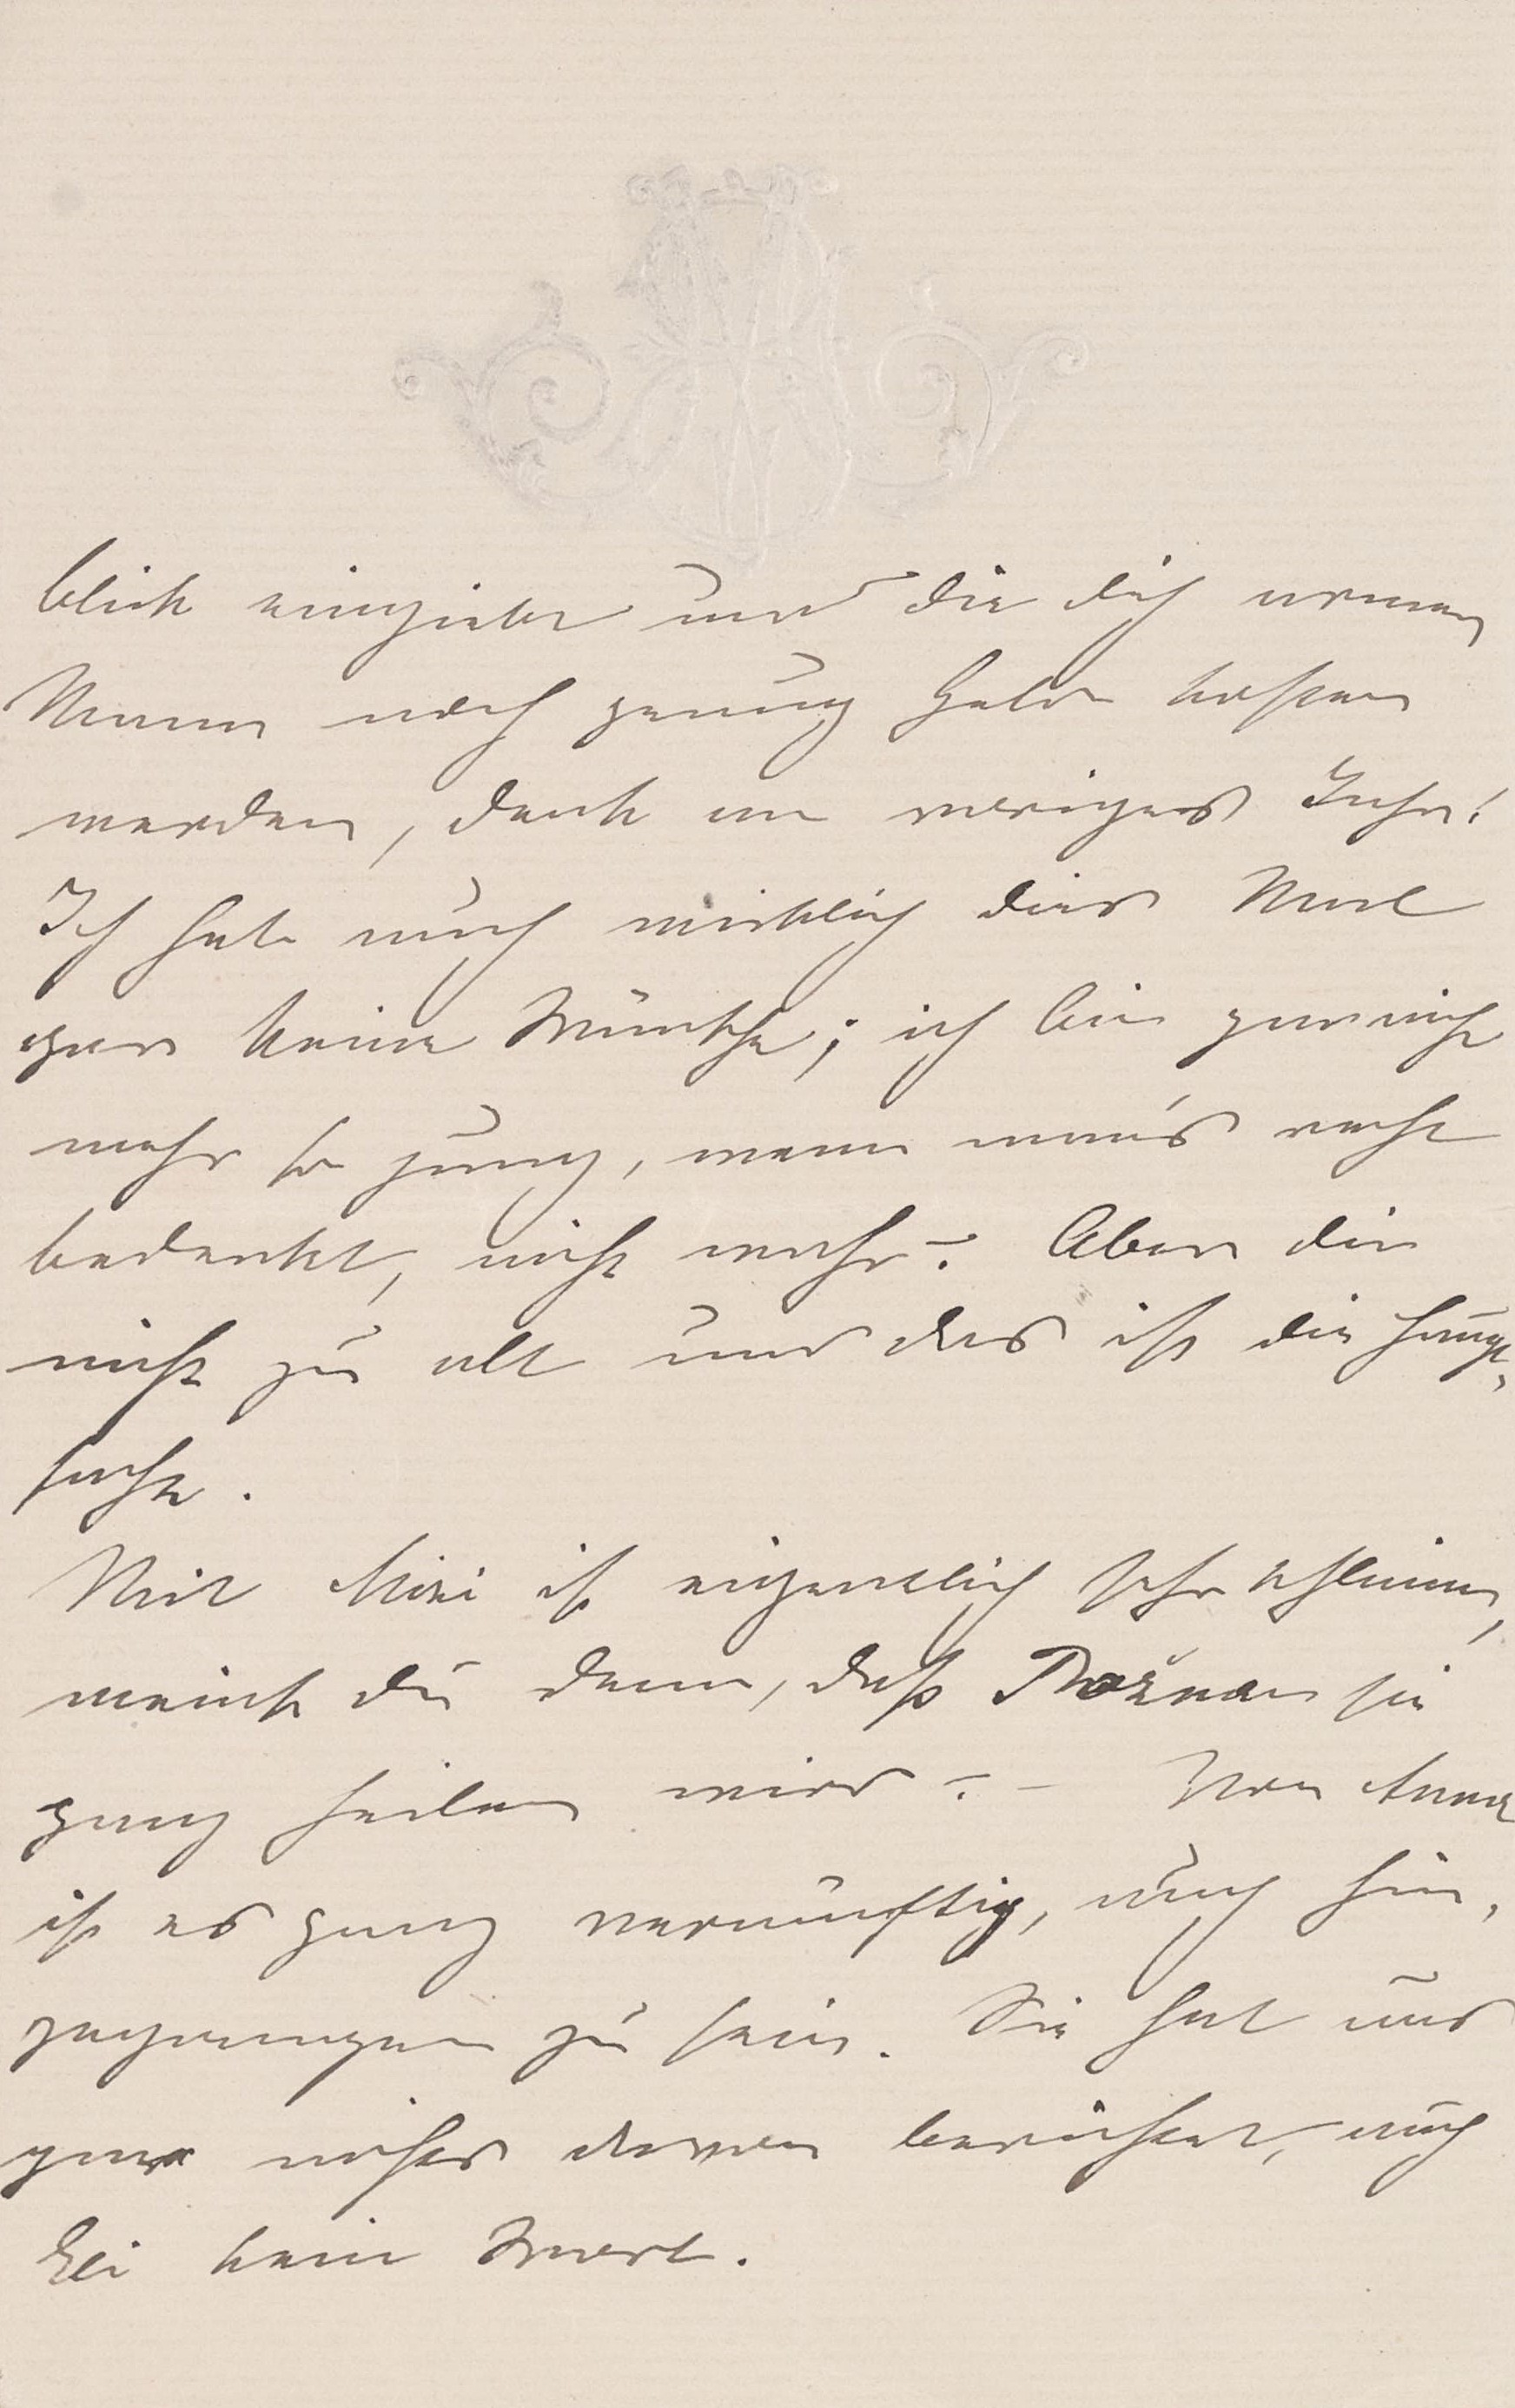 blick einziehen und die dich armen
Mann noch genug Geld kosten
werden, denk an voriges Jahr!
Ich habe auch wirklich dies Mal
gar keine Wünsche; ich bin gar nicht
mehr so jung, wenn man's recht
bedenkt, nicht wahr? Aber die
nicht zu alt und das ist die Haupt-
sache.
Mit Mizi ist eigentlich sehr schlimm,
meinst du denn, daß sie
ganz heilen wird? – Von Anna
ist es ganz vernünftig, auch hin-
gegangen zu sein. Sie hat uns
gar nichts davon berichtet, auch
Eli kein Wort.